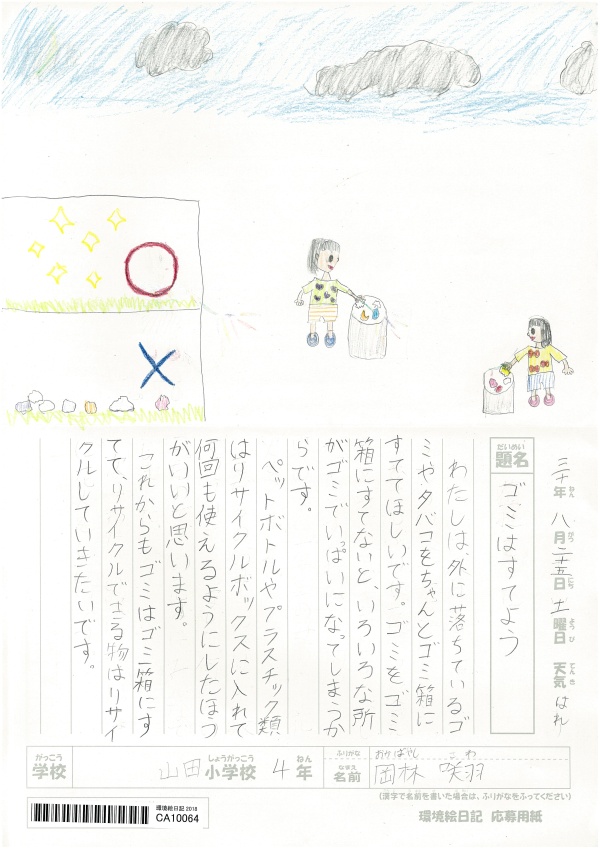 三十年ねん 八月がつ二十五日にち 土曜日ようび 天気てんき はれ
題名だいめい ゴミはすてよう
わたしは、外に落ちているゴ
ミやタバコをちゃんとゴミ箱に
すててほしいです。ゴミをゴミ
箱にすてないと、いろいろな所
がゴミでいっぱいになってしまうか
らです。
ペットボトルやプラスチック類
はリサイクルボックスに入れて
何回も使えるようにしたほう
がいいと思います。
これからもゴミはゴミ箱にす
てて、リサイクルできる物はリサイ
クルしていきたいです。
がっこう 学校 山田小学校しょうがっこう 4年ねん
ふりがな おかばやし さわ
なまえ 名前 岡林 咲羽
(漢字で名前を書いた場合は、ふりがなをふってください)
環境絵日記 応募用紙
環境絵日記 2018
CA10064